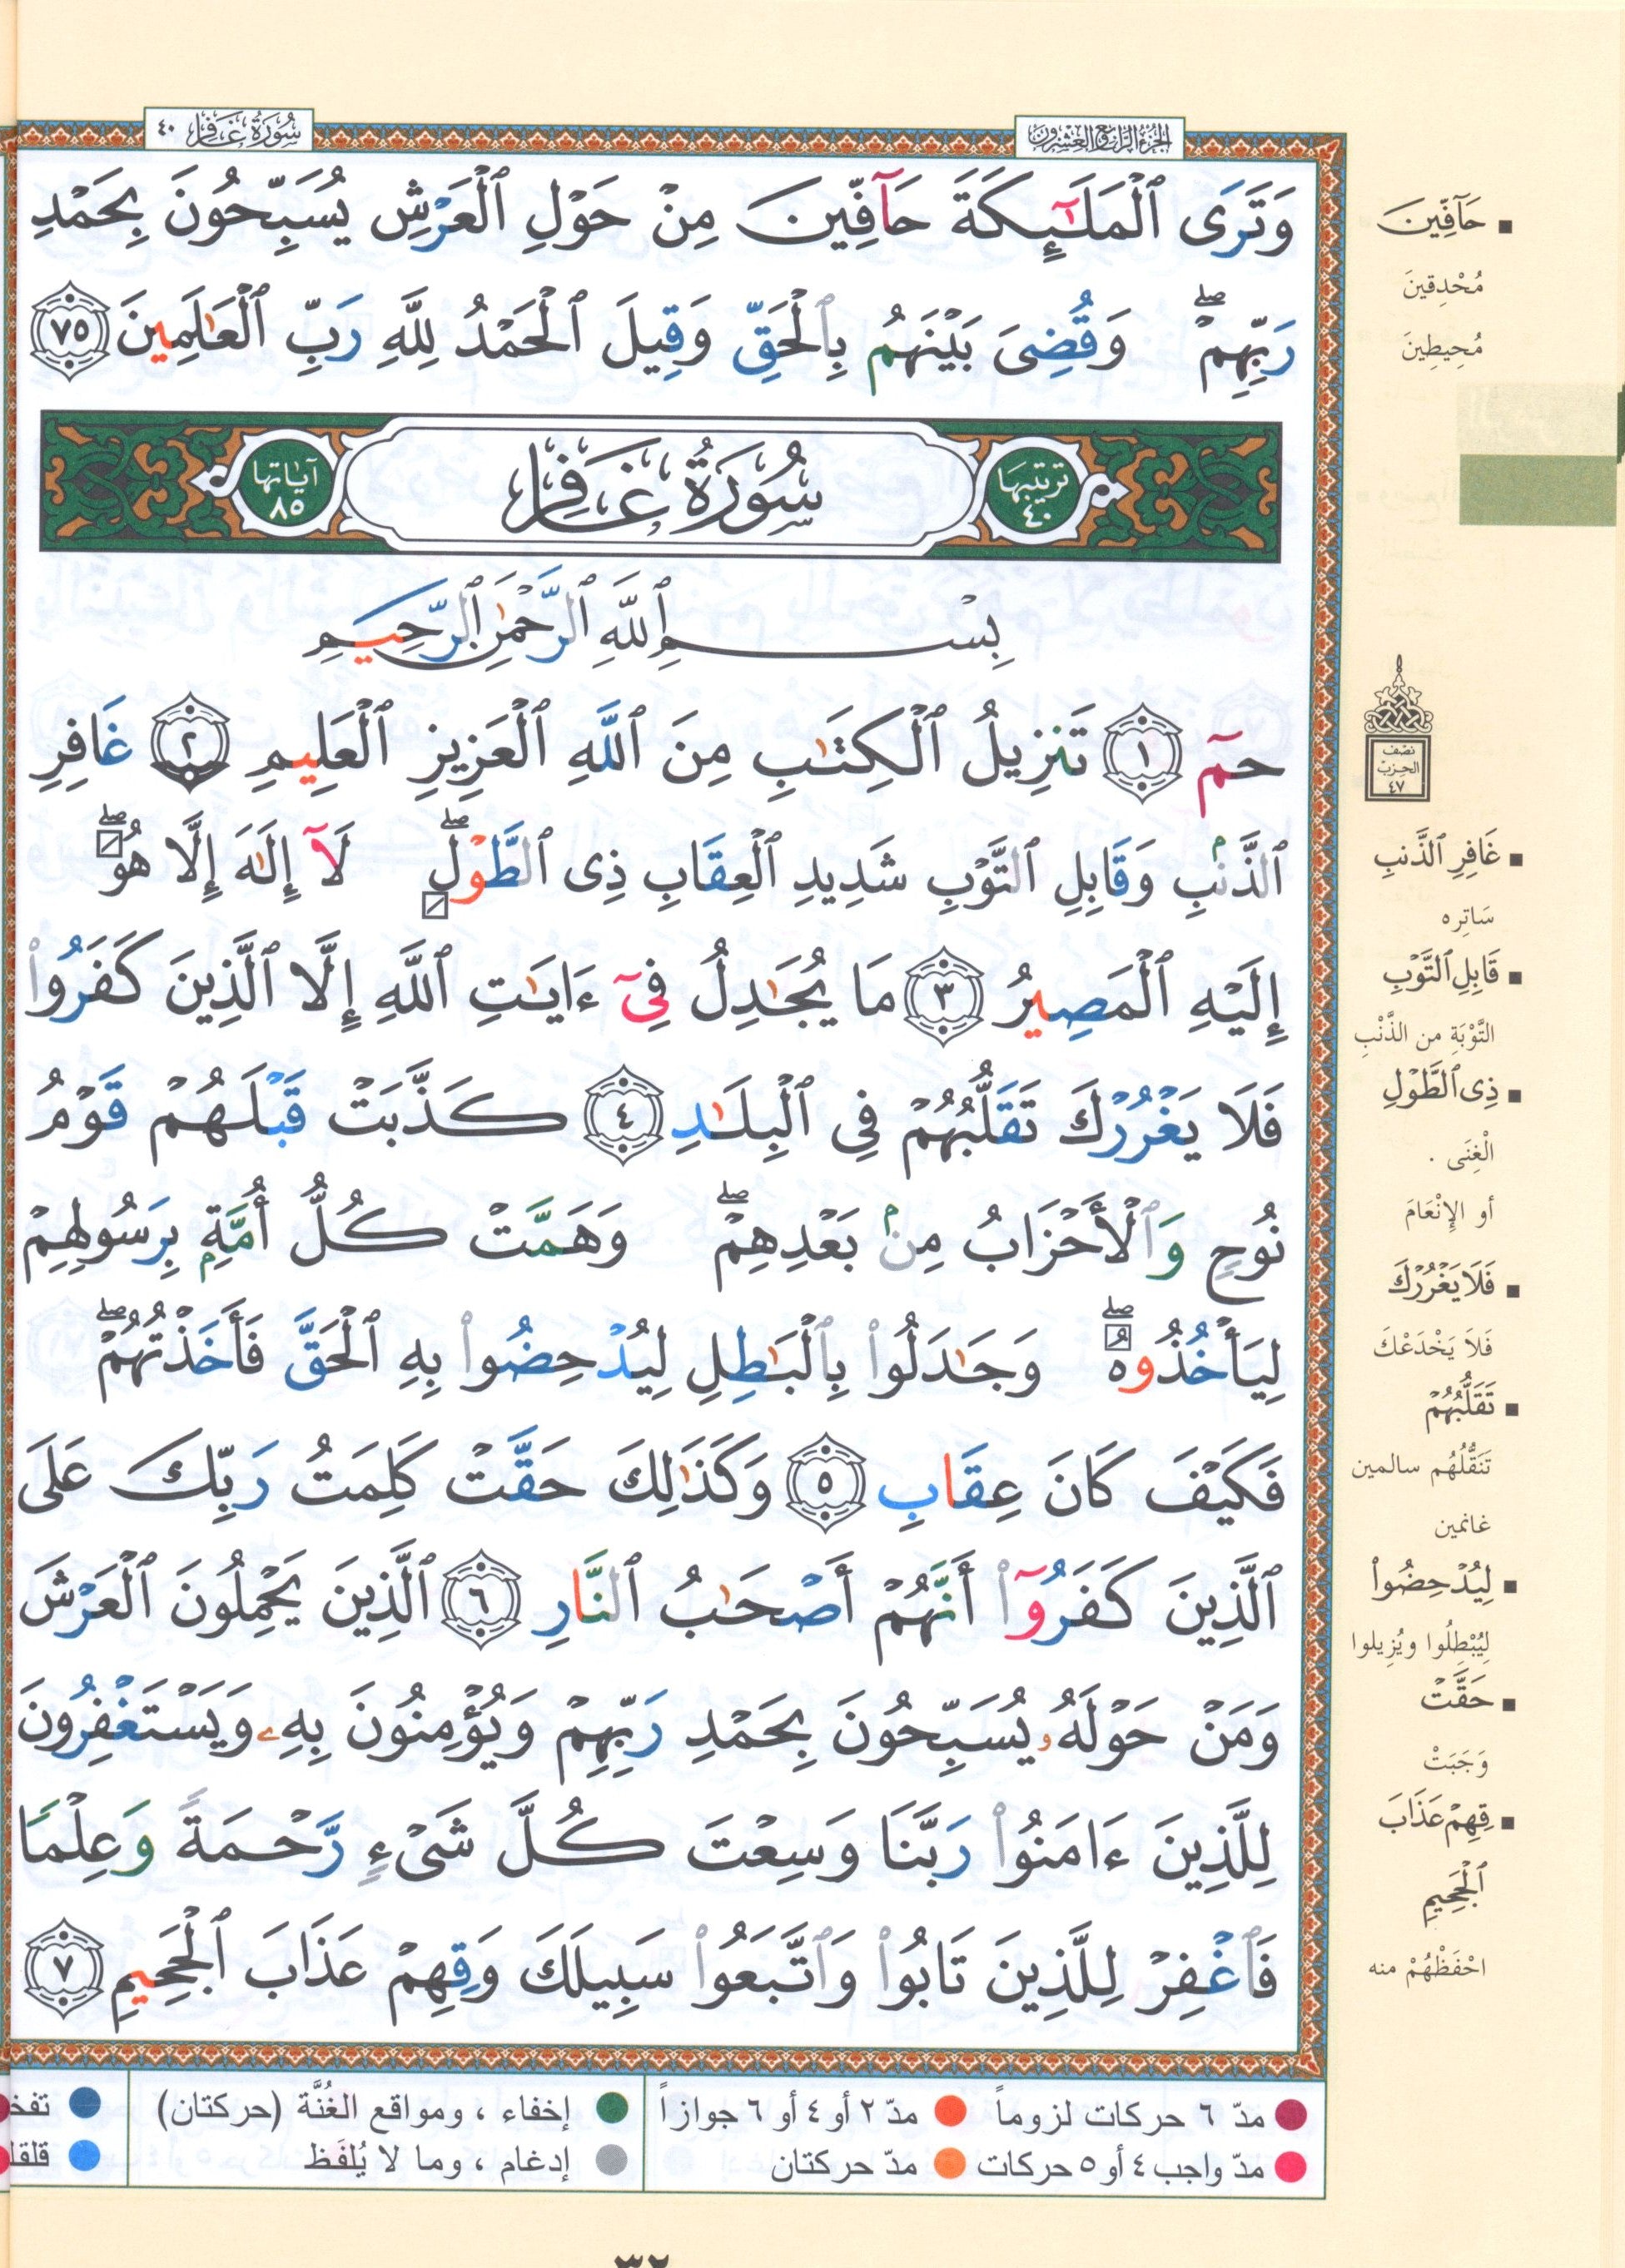 الجزء الرابع والعشرون
سورة غافر ٤٠
وَتَرَى ٱلْمَلَـٰٓئِكَةَ حَآفِّينَ مِنْ حَوْلِ ٱلْعَرْشِ يُسَبِّحُونَ بِحَمْدِ
رَبِّهِمْ ۖ وَقُضِىَ بَيْنَهُم بِٱلْحَقِّ وَقِيلَ ٱلْحَمْدُ لِلَّهِ رَبِّ ٱلْعَـٰلَمِينَ ٧٥
ترتيبها ٤٠
سُورَةُ غَافِرٍ
آياتها ٨٥
بِسْمِ ٱللَّهِ ٱلرَّحْمَـٰنِ ٱلرَّحِيمِ
حمٓ ١ تَنزِيلُ ٱلْكِتَـٰبِ مِنَ ٱللَّهِ ٱلْعَزِيزِ ٱلْعَلِيمِ ٢ غَافِرِ
ٱلذَّنۢبِ وَقَابِلِ ٱلتَّوْبِ شَدِيدِ ٱلْعِقَابِ ذِى ٱلطَّوْلِ ۖ لَآ إِلَـٰهَ إِلَّا هُوَ ۖ
إِلَيْهِ ٱلْمَصِيرُ ٣ مَا يُجَـٰدِلُ فِىٓ ءَايَـٰتِ ٱللَّهِ إِلَّا ٱلَّذِينَ كَفَرُوا۟
فَلَا يَغْرُرْكَ تَقَلُّبُهُمْ فِى ٱلْبِلَـٰدِ ٤ كَذَّبَتْ قَبْلَهُمْ قَوْمُ
نُوحٍ وَٱلْأَحْزَابُ مِنۢ بَعْدِهِمْ ۖ وَهَمَّتْ كُلُّ أُمَّةٍۭ بِرَسُولِهِمْ
لِيَأْخُذُوهُ ۖ وَجَـٰدَلُوا۟ بِٱلْبَـٰطِلِ لِيُدْحِضُوا۟ بِهِ ٱلْحَقَّ فَأَخَذْتُهُمْ ۖ
فَكَيْفَ كَانَ عِقَابِ ٥ وَكَذَٰلِكَ حَقَّتْ كَلِمَتُ رَبِّكَ عَلَى
ٱلَّذِينَ كَفَرُوٓا۟ أَنَّهُمْ أَصْحَـٰبُ ٱلنَّارِ ٦ ٱلَّذِينَ يَحْمِلُونَ ٱلْعَرْشَ
وَمَنْ حَوْلَهُۥ يُسَبِّحُونَ بِحَمْدِ رَبِّهِمْ وَيُؤْمِنُونَ بِهِۦ وَيَسْتَغْفِرُونَ
لِلَّذِينَ ءَامَنُوا۟ رَبَّنَا وَسِعْتَ كُلَّ شَىْءٍ رَّحْمَةً وَعِلْمًا
فَٱغْفِرْ لِلَّذِينَ تَابُوا۟ وَٱتَّبَعُوا۟ سَبِيلَكَ وَقِهِمْ عَذَابَ ٱلْجَحِيمِ ٧
حَآفِّينَ
مُحْدِقِينَ
مُحِيطِينَ
نصف
الحزب
٤٧
غَافِرِ ٱلذَّنبِ
سَاتِرِه
قَابِلِ ٱلتَّوْبِ
التَّوْبَةِ من الذَّنْبِ
ذِى ٱلطَّوْلِ
الْغِنَى .
أو الإِنْعَامَ
فَلَا يَغْرُرْكَ
فَلَا يَخْدَعْكَ
تَقَلُّبُهُمْ
تَنَقُّلُهُم سالمين
غانمين
لِيُدْحِضُوا۟
لِيُبْطِلُوا ويُزِيلوا
حَقَّتْ
وَجَبَتْ
قِهِمْ عَذَابَ
ٱلْجَحِيمِ
احْفَظْهُمْ منه
مدّ ٦ حركات لزوماً
مدّ ٢ أو ٤ أو ٦ جوازاً
إخفاء ، ومواقع الغُنَّة (حركتان)
مدّ واجب ٤ أو ٥ حركات
مدّ حركتان
إدغام ، وما لا يُلفَظ